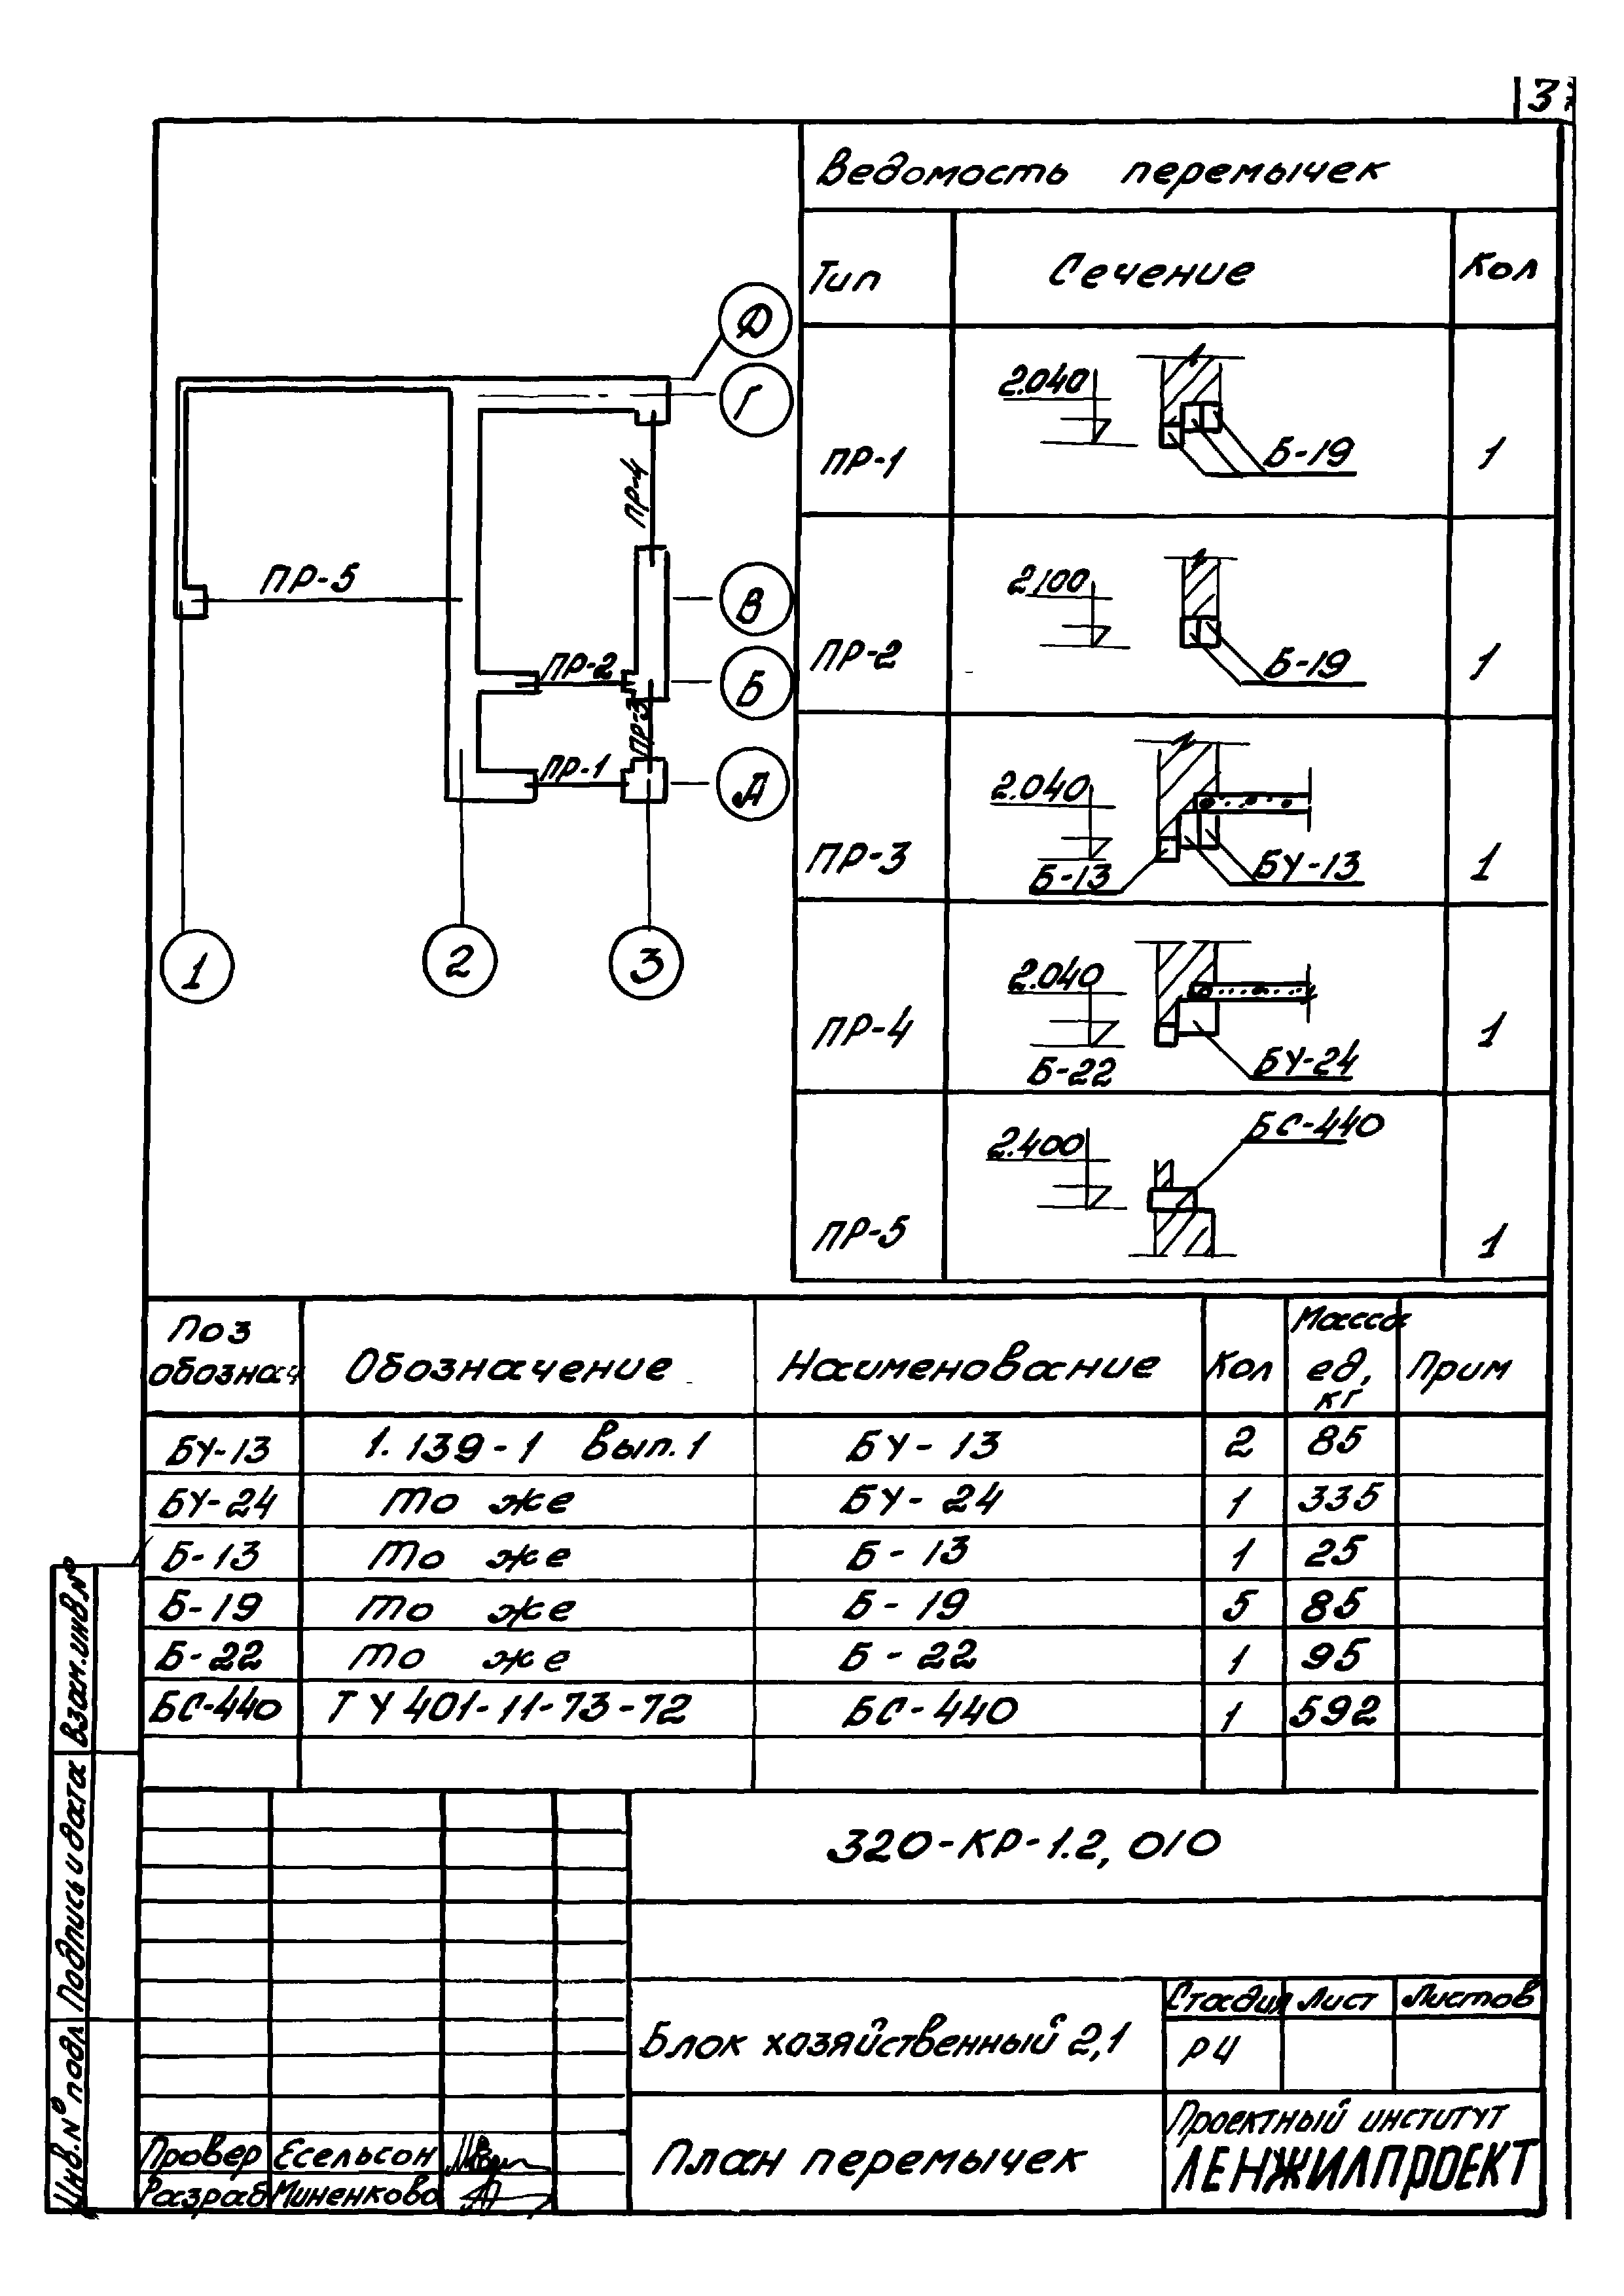 3
Ведомость перемычек
Тип Сечение Кол
ПР-1 2.040 Б-19 1
ПР-2 2,100 Б-19 1
ПР-3 2.040 Б-13 БУ-13 1
ПР-4 2.040 Б-22 БУ-24 1
ПР-5 2.400 БС-440 1
Д
Г
ПР-4
ПР-5
В
ПР-2
Б
ПР-3
ПР-1
А
1 2 3
Поз обознач Обозначение Наименование Кол Масса ед, кг Прим
БУ-13 1.139-1 Вып.1 БУ-13 2 85
БУ-24 То же БУ-24 1 335
Б-13 То же Б-13 1 25
Б-19 То же Б-19 5 85
Б-22 То же Б-22 1 95
БС-440 ТУ 401-11-73-72 БС-440 1 592
Взам.инв.№
Подпись и дата
Инв.№ подл
320-КР-1.2, 010
Блок хозяйственный 2,1
Стадия Лист Листов
РЧ
План перемычек
Проектный институт
ЛЕНЖИЛПРОЕКТ
Провер Есельсон
Разраб Миненкова